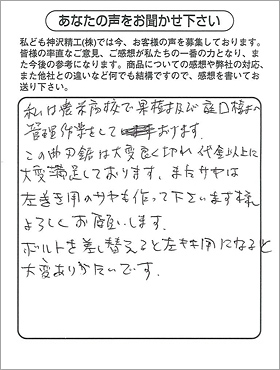 あなたの声をお聞かせ下さい
私ども神沢精工(株)では今、お客様の声を募集しております。
皆様の率直なご意見、ご感想が私たちの一番の力となり、ま
た今後の参考になります。商品についての感想や弊社の対応、
また他社との違いなど何でも結構ですので、感想を書いてお
送り下さい。
私は農業高校で果樹及び庭口樹木の
管理作業をして おります。
この曲刃鋸は大変良く切れ代金以上に
大変満足しております。またサヤは
左きき用のサヤも作って下さいます様
よろしくお願いします。
ボルトを差し替えると左きき用になると
大変ありがたいです。